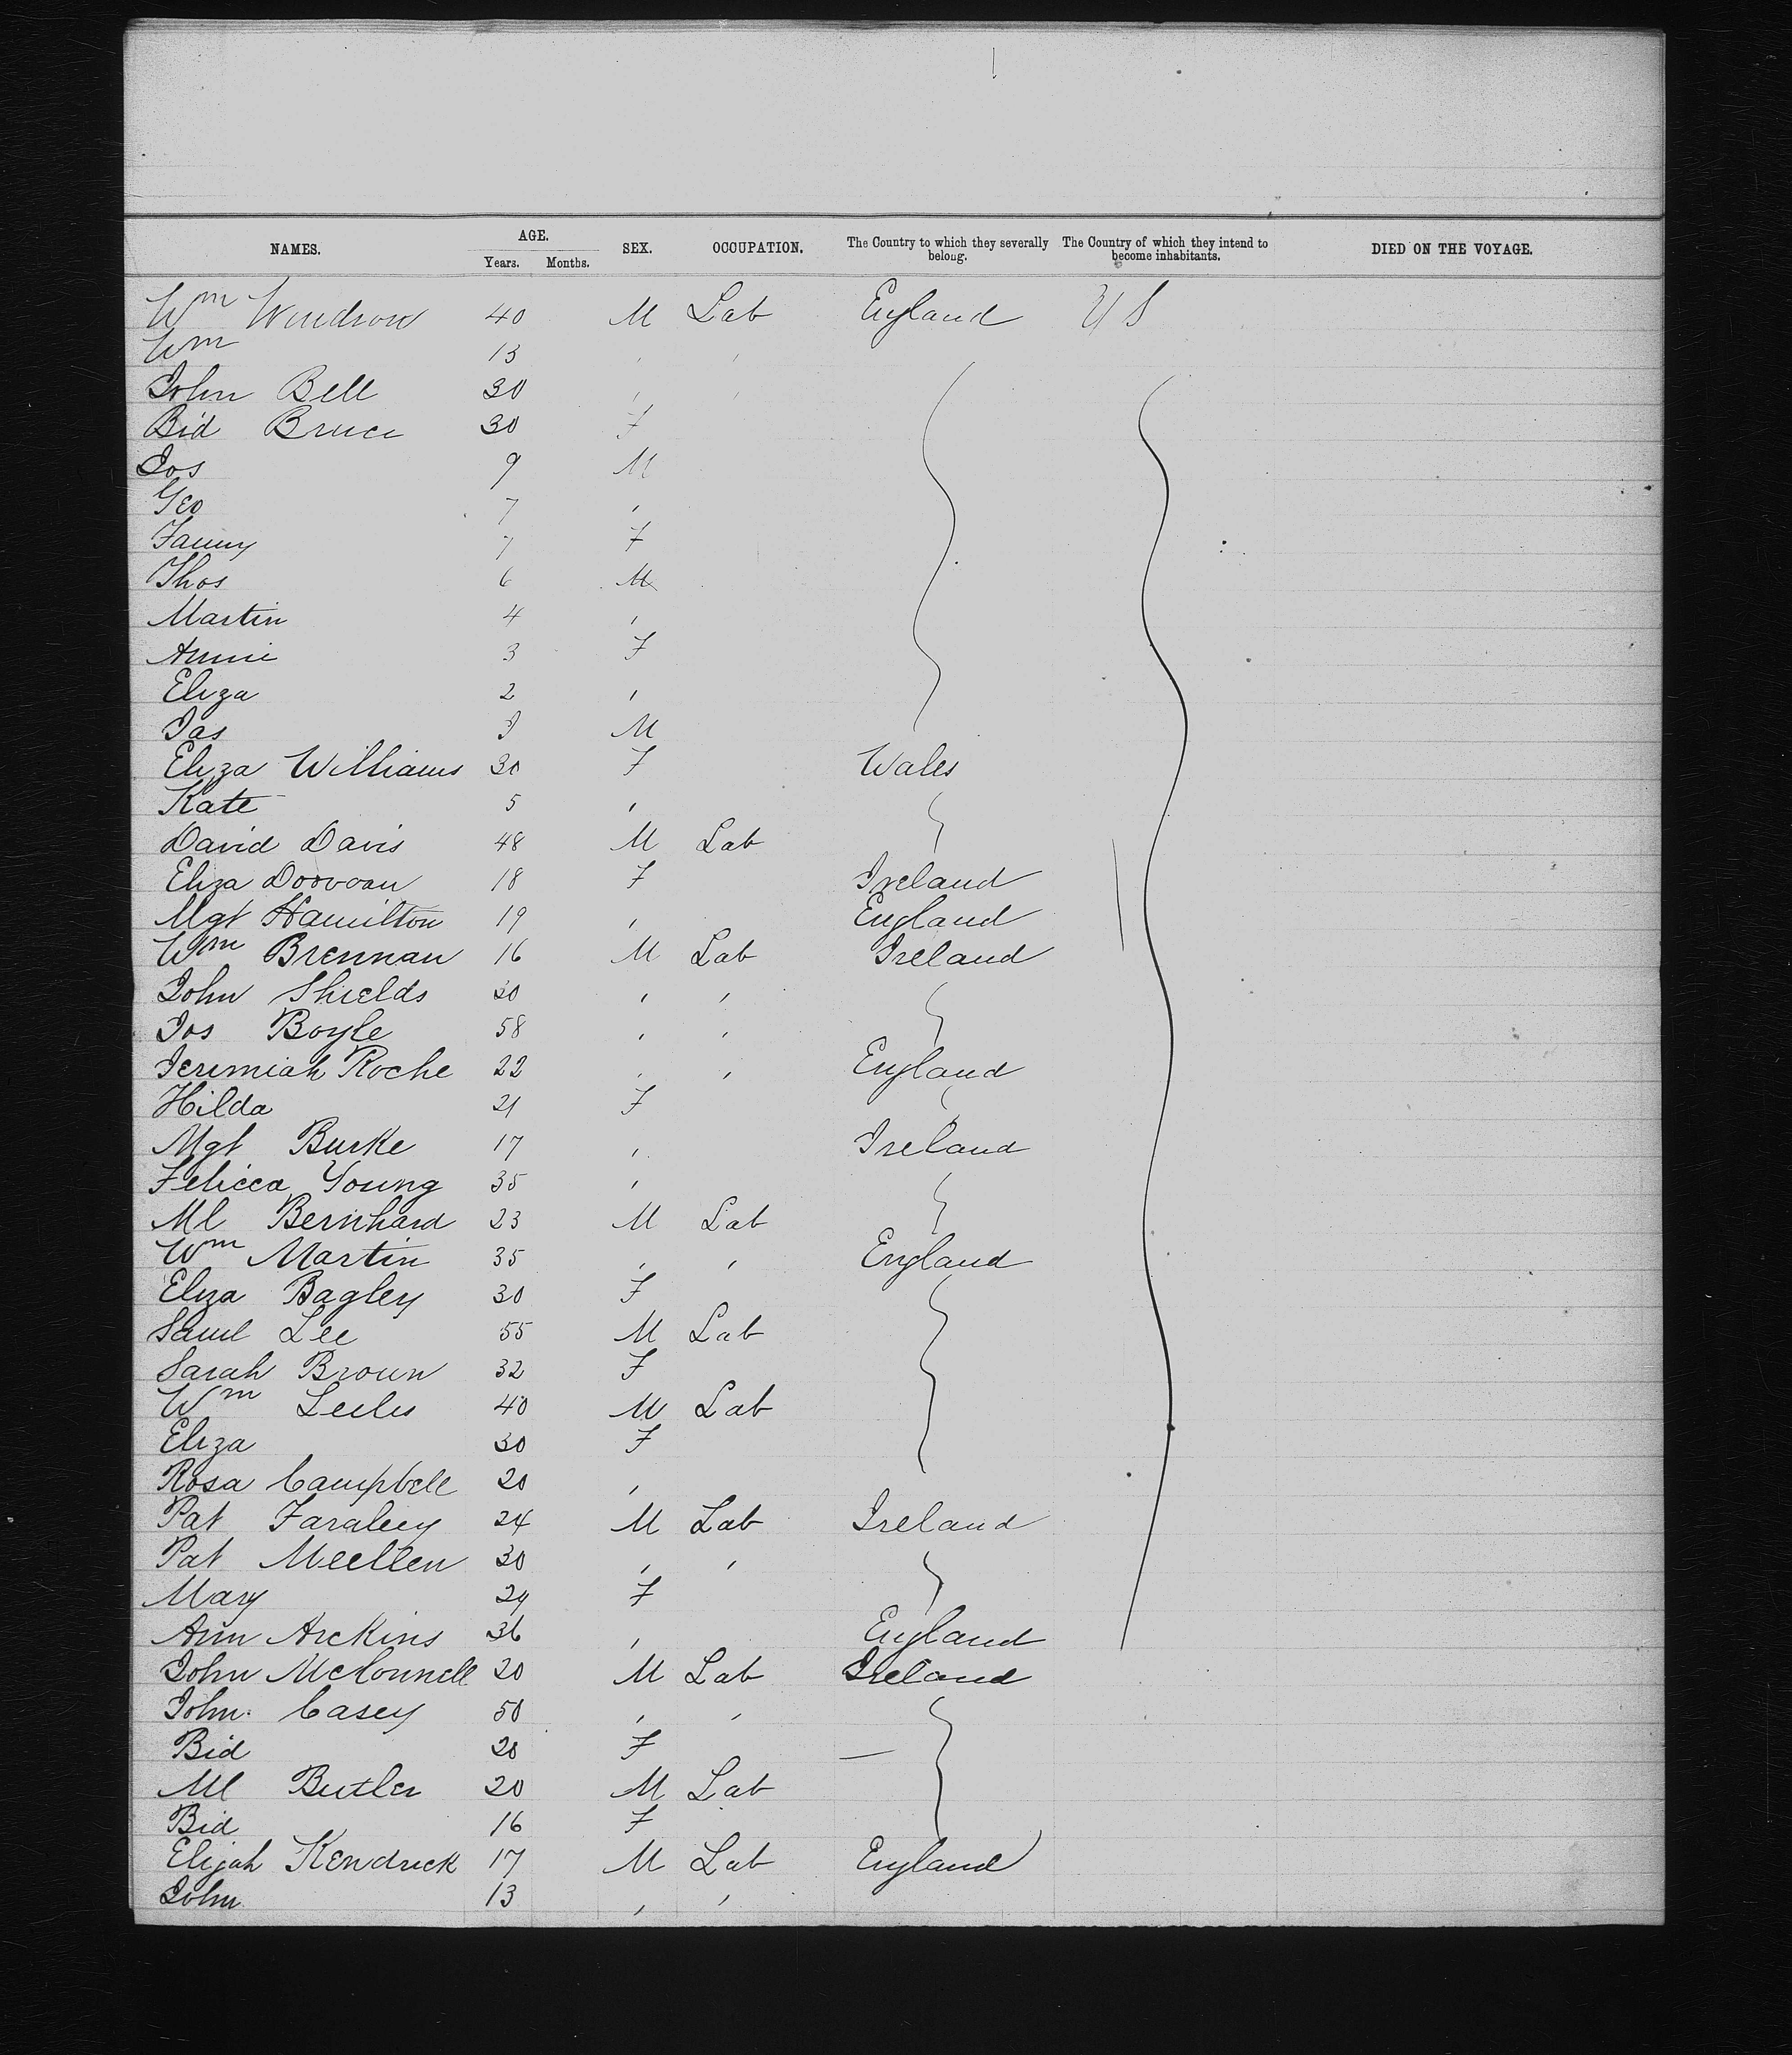 NAMES. AGE. Years. Months. SEX. OCCUPATION. The Country to which they severally belong. The Country of which they intend to become inhabitants. DIED ON THE VOYAGE.
Wm Windrow 40 M Lab England U S
Wm 13 , ,
John Bell 30 , ,
Bid Bruce 30 F
Jos 9 M
Geo 7 ,
Fanny 7 F
Thos 6 M
Martin 4 ,
Annie 3 F
Eliza 2 ,
Jas M
Eliza Williams 30 F Wales
Kate 5 ,
David Davis 48 M Lab
Eliza Donovan 18 F Ireland
Mgt Hamilton 19 , England
Wm Brennan 16 M Lab Ireland
John Shields 30 , ,
Jos Boyle 58 , ,
Jeremiah Roche 22 , , England
Hilda 21 F
Mgt Burke 17 , Ireland
Felicca Young 35 ,
Ml Bernhard 23 M Lab
Wm Martin 35 , , England
Eliza Bagley 30 F
Saml Lee 55 M Lab
Sarah Brown 32 F
Wm 40 M Lab
Eliza 30 F
Rosa Campbell 20 ,
Pat 24 M Lab Ireland
Pat Mullen 30 , ,
Mary 24 F
Ann Arckins 36 , England
John McConnell 20 M Lab Ireland
John Casey 50 , ,
Bid 20 F
Ml Butler 20 M Lab
Bid 16 F
Elijah Kendrick 17 M Lab England
John 13 , ,